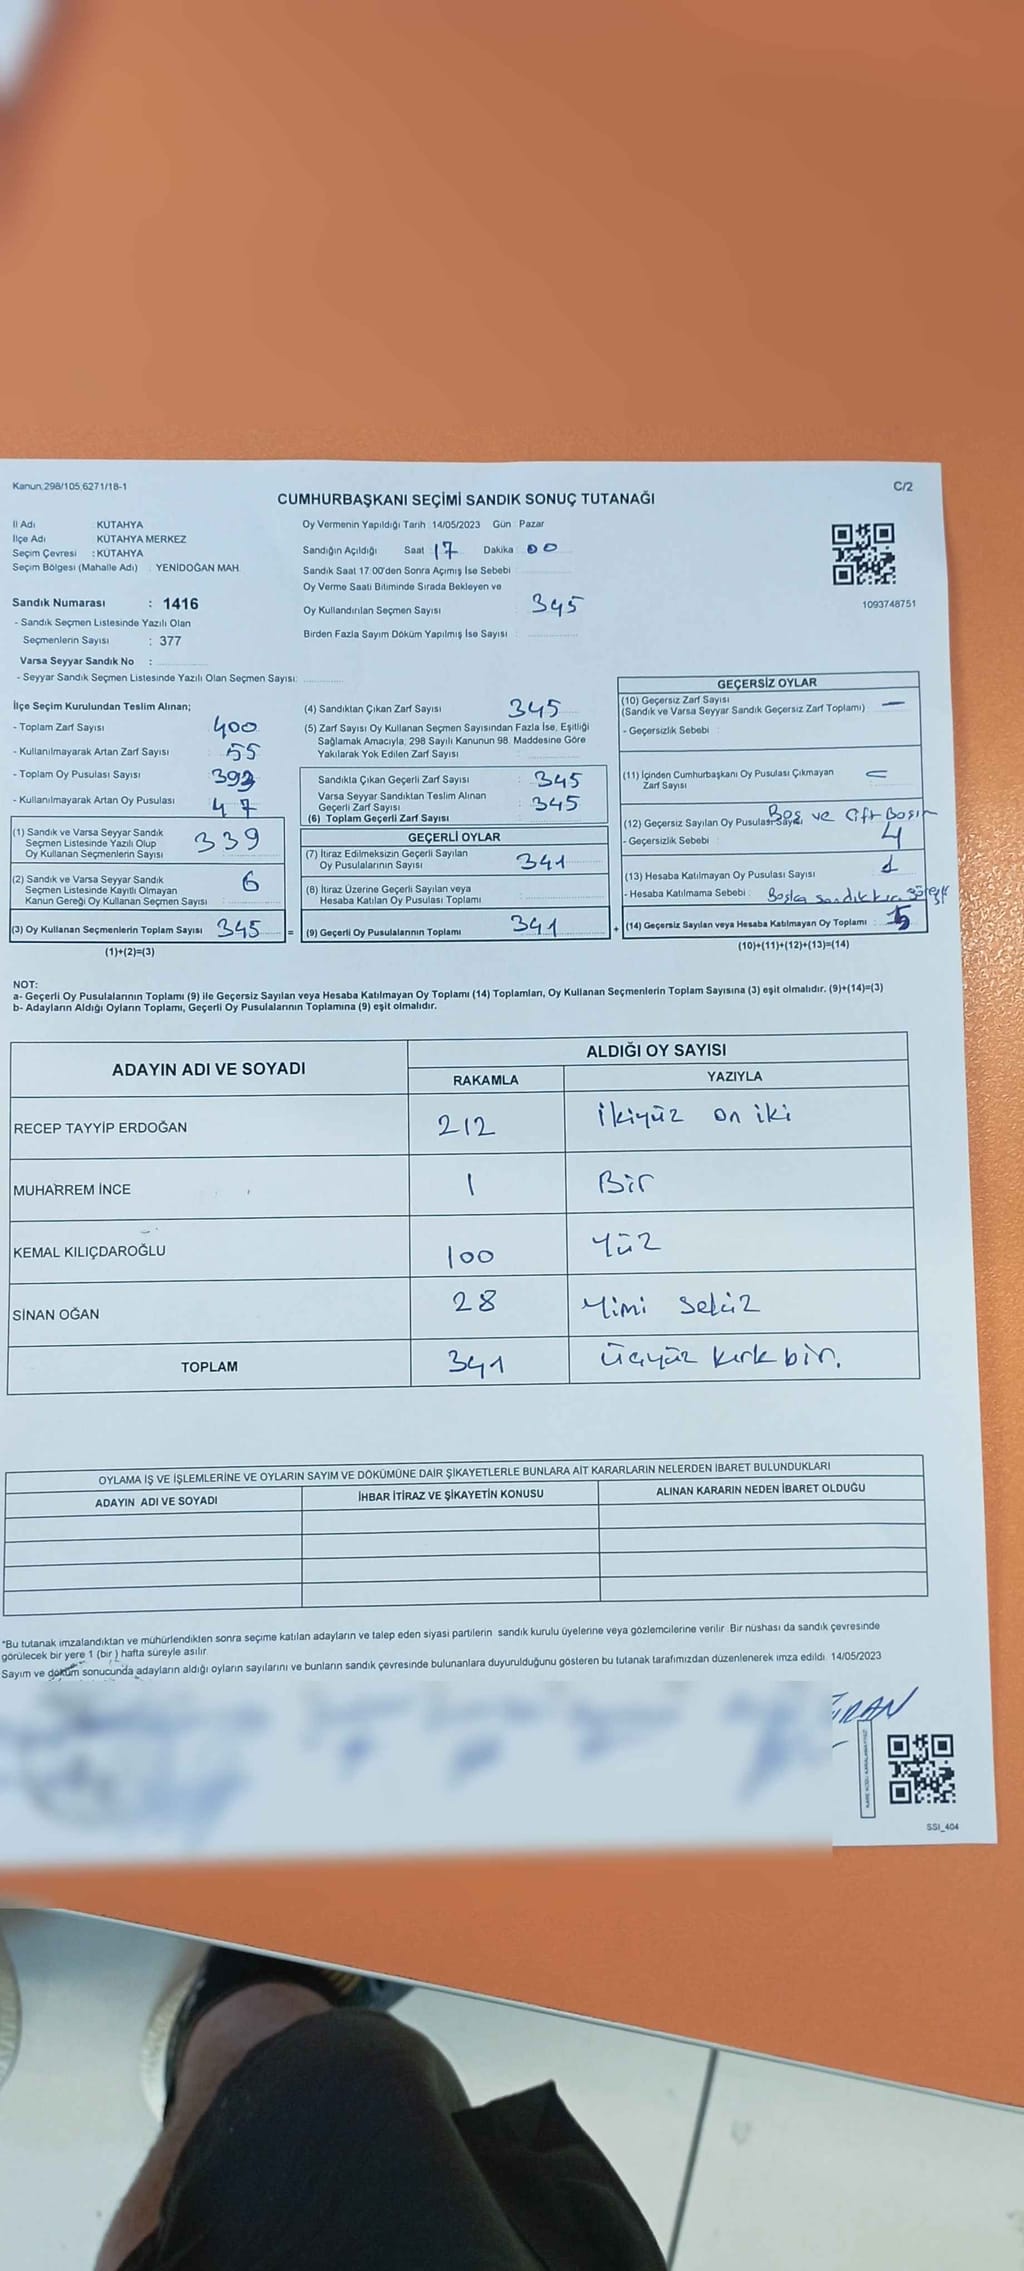 Kanun;298/105;6271/18-1
C/2
CUMHURBAŞKANI SEÇİMİ SANDIK SONUÇ TUTANAĞI
İl Adı : KÜTAHYA
İlçe Adı : KÜTAHYA MERKEZ
Seçim Çevresi : KÜTAHYA
Seçim Bölgesi (Mahalle Adı) : YENİDOĞAN MAH.
Sandık Numarası : 1416
- Sandık Seçmen Listesinde Yazılı Olan
Seçmenlerin Sayısı : 377
Varsa Seyyar Sandık No :
- Seyyar Sandık Seçmen Listesinde Yazılı Olan Seçmen Sayısı:
Oy Vermenin Yapıldığı Tarih : 14/05/2023 Gün : Pazar
Sandığın Açıldığı Saat 17 Dakika 00
Sandık Saat 17.00'den Sonra Açımış İse Sebebi
Oy Verme Saati Bitiminde Sırada Bekleyen ve
Oy Kullandırılan Seçmen Sayısı : 345
Birden Fazla Sayım Döküm Yapılmış İse Sayısı :
1093748751
İlçe Seçim Kurulundan Teslim Alınan;
- Toplam Zarf Sayısı : 400
- Kullanılmayarak Artan Zarf Sayısı : 55
- Toplam Oy Pusulası Sayısı : 392
- Kullanılmayarak Artan Oy Pusulası : 47
(1) Sandık ve Varsa Seyyar Sandık
Seçmen Listesinde Yazılı Olup
Oy Kullanan Seçmenlerin Sayısı 339
(2) Sandık ve Varsa Seyyar Sandık
Seçmen Listesinde Kayıtlı Olmayan
Kanun Gereği Oy Kullanan Seçmen Sayısı 6
(3) Oy Kullanan Seçmenlerin Toplam Sayısı : 345 =
(1)+(2)=(3)
(4) Sandıktan Çıkan Zarf Sayısı : 345
(5) Zarf Sayısı Oy Kullanan Seçmen Sayısından Fazla İse, Eşitliği
Sağlamak Amacıyla, 298 Sayılı Kanunun 98. Maddesine Göre
Yakılarak Yok Edilen Zarf Sayısı
Sandıkta Çıkan Geçerli Zarf Sayısı : 345
Varsa Seyyar Sandıktan Teslim Alınan
Geçerli Zarf Sayısı : 345
(6) Toplam Geçerli Zarf Sayısı
GEÇERLİ OYLAR
(7) İtiraz Edilmeksizin Geçerli Sayılan
Oy Pusulalarının Sayısı : 341
(8) İtiraz Üzerine Geçerli Sayılan veya
Hesaba Katılan Oy Pusulası Toplamı
(9) Geçerli Oy Pusulalarının Toplamı : 341 +
GEÇERSİZ OYLAR
(10) Geçersiz Zarf Sayısı
(Sandık ve Varsa Seyyar Sandık Geçersiz Zarf Toplamı) : —
- Geçersizlik Sebebi :
(11) İçinden Cumhurbaşkanı Oy Pusulası Çıkmayan
Zarf Sayısı
(12) Geçersiz Sayılan Oy Pusulası Sayısı Boş ve Çift Basım
- Geçersizlik Sebebi : 4
(13) Hesaba Katılmayan Oy Pusulası Sayısı : 1
- Hesaba Katılmama Sebebi : Başka
(14) Geçersiz Sayılan veya Hesaba Katılmayan Oy Toplamı : 5
(10)+(11)+(12)+(13)=(14)
NOT:
a- Geçerli Oy Pusulalarının Toplamı (9) ile Geçersiz Sayılan veya Hesaba Katılmayan Oy Toplamı (14) Toplamları, Oy Kullanan Seçmenlerin Toplam Sayısına (3) eşit olmalıdır. (9)+(14)=(3)
b- Adayların Aldığı Oyların Toplamı, Geçerli Oy Pusulalarının Toplamına (9) eşit olmalıdır.
ADAYIN ADI VE SOYADI
ALDIĞI OY SAYISI
RAKAMLA YAZIYLA
RECEP TAYYİP ERDOĞAN 212 ikiyüz on iki
MUHARREM İNCE 1 Bir
KEMAL KILIÇDAROĞLU 100 Yüz
SİNAN OĞAN 28 Yimi sekiz
TOPLAM 341 Üçyüz kırk bir.
OYLAMA İŞ VE İŞLEMLERİNE VE OYLARIN SAYIM VE DÖKÜMÜNE DAİR ŞİKAYETLERLE BUNLARA AİT KARARLARIN NELERDEN İBARET BULUNDUKLARI
ADAYIN ADI VE SOYADI İHBAR İTİRAZ VE ŞİKAYETİN KONUSU ALINAN KARARIN NEDEN İBARET OLDUĞU
*Bu tutanak imzalandıktan ve mühürlendikten sonra seçime katılan adayların ve talep eden siyasi partilerin sandık kurulu üyelerine veya gözlemcilerine verilir. Bir nüshası da sandık çevresinde
görülecek bir yere 1 (bir ) hafta süreyle asılır.
Sayım ve döküm sonucunda adayların aldığı oyların sayılarını ve bunların sandık çevresinde bulunanlara duyurulduğunu gösteren bu tutanak tarafımızdan düzenlenerek imza edildi. 14/05/2023
SSI_404